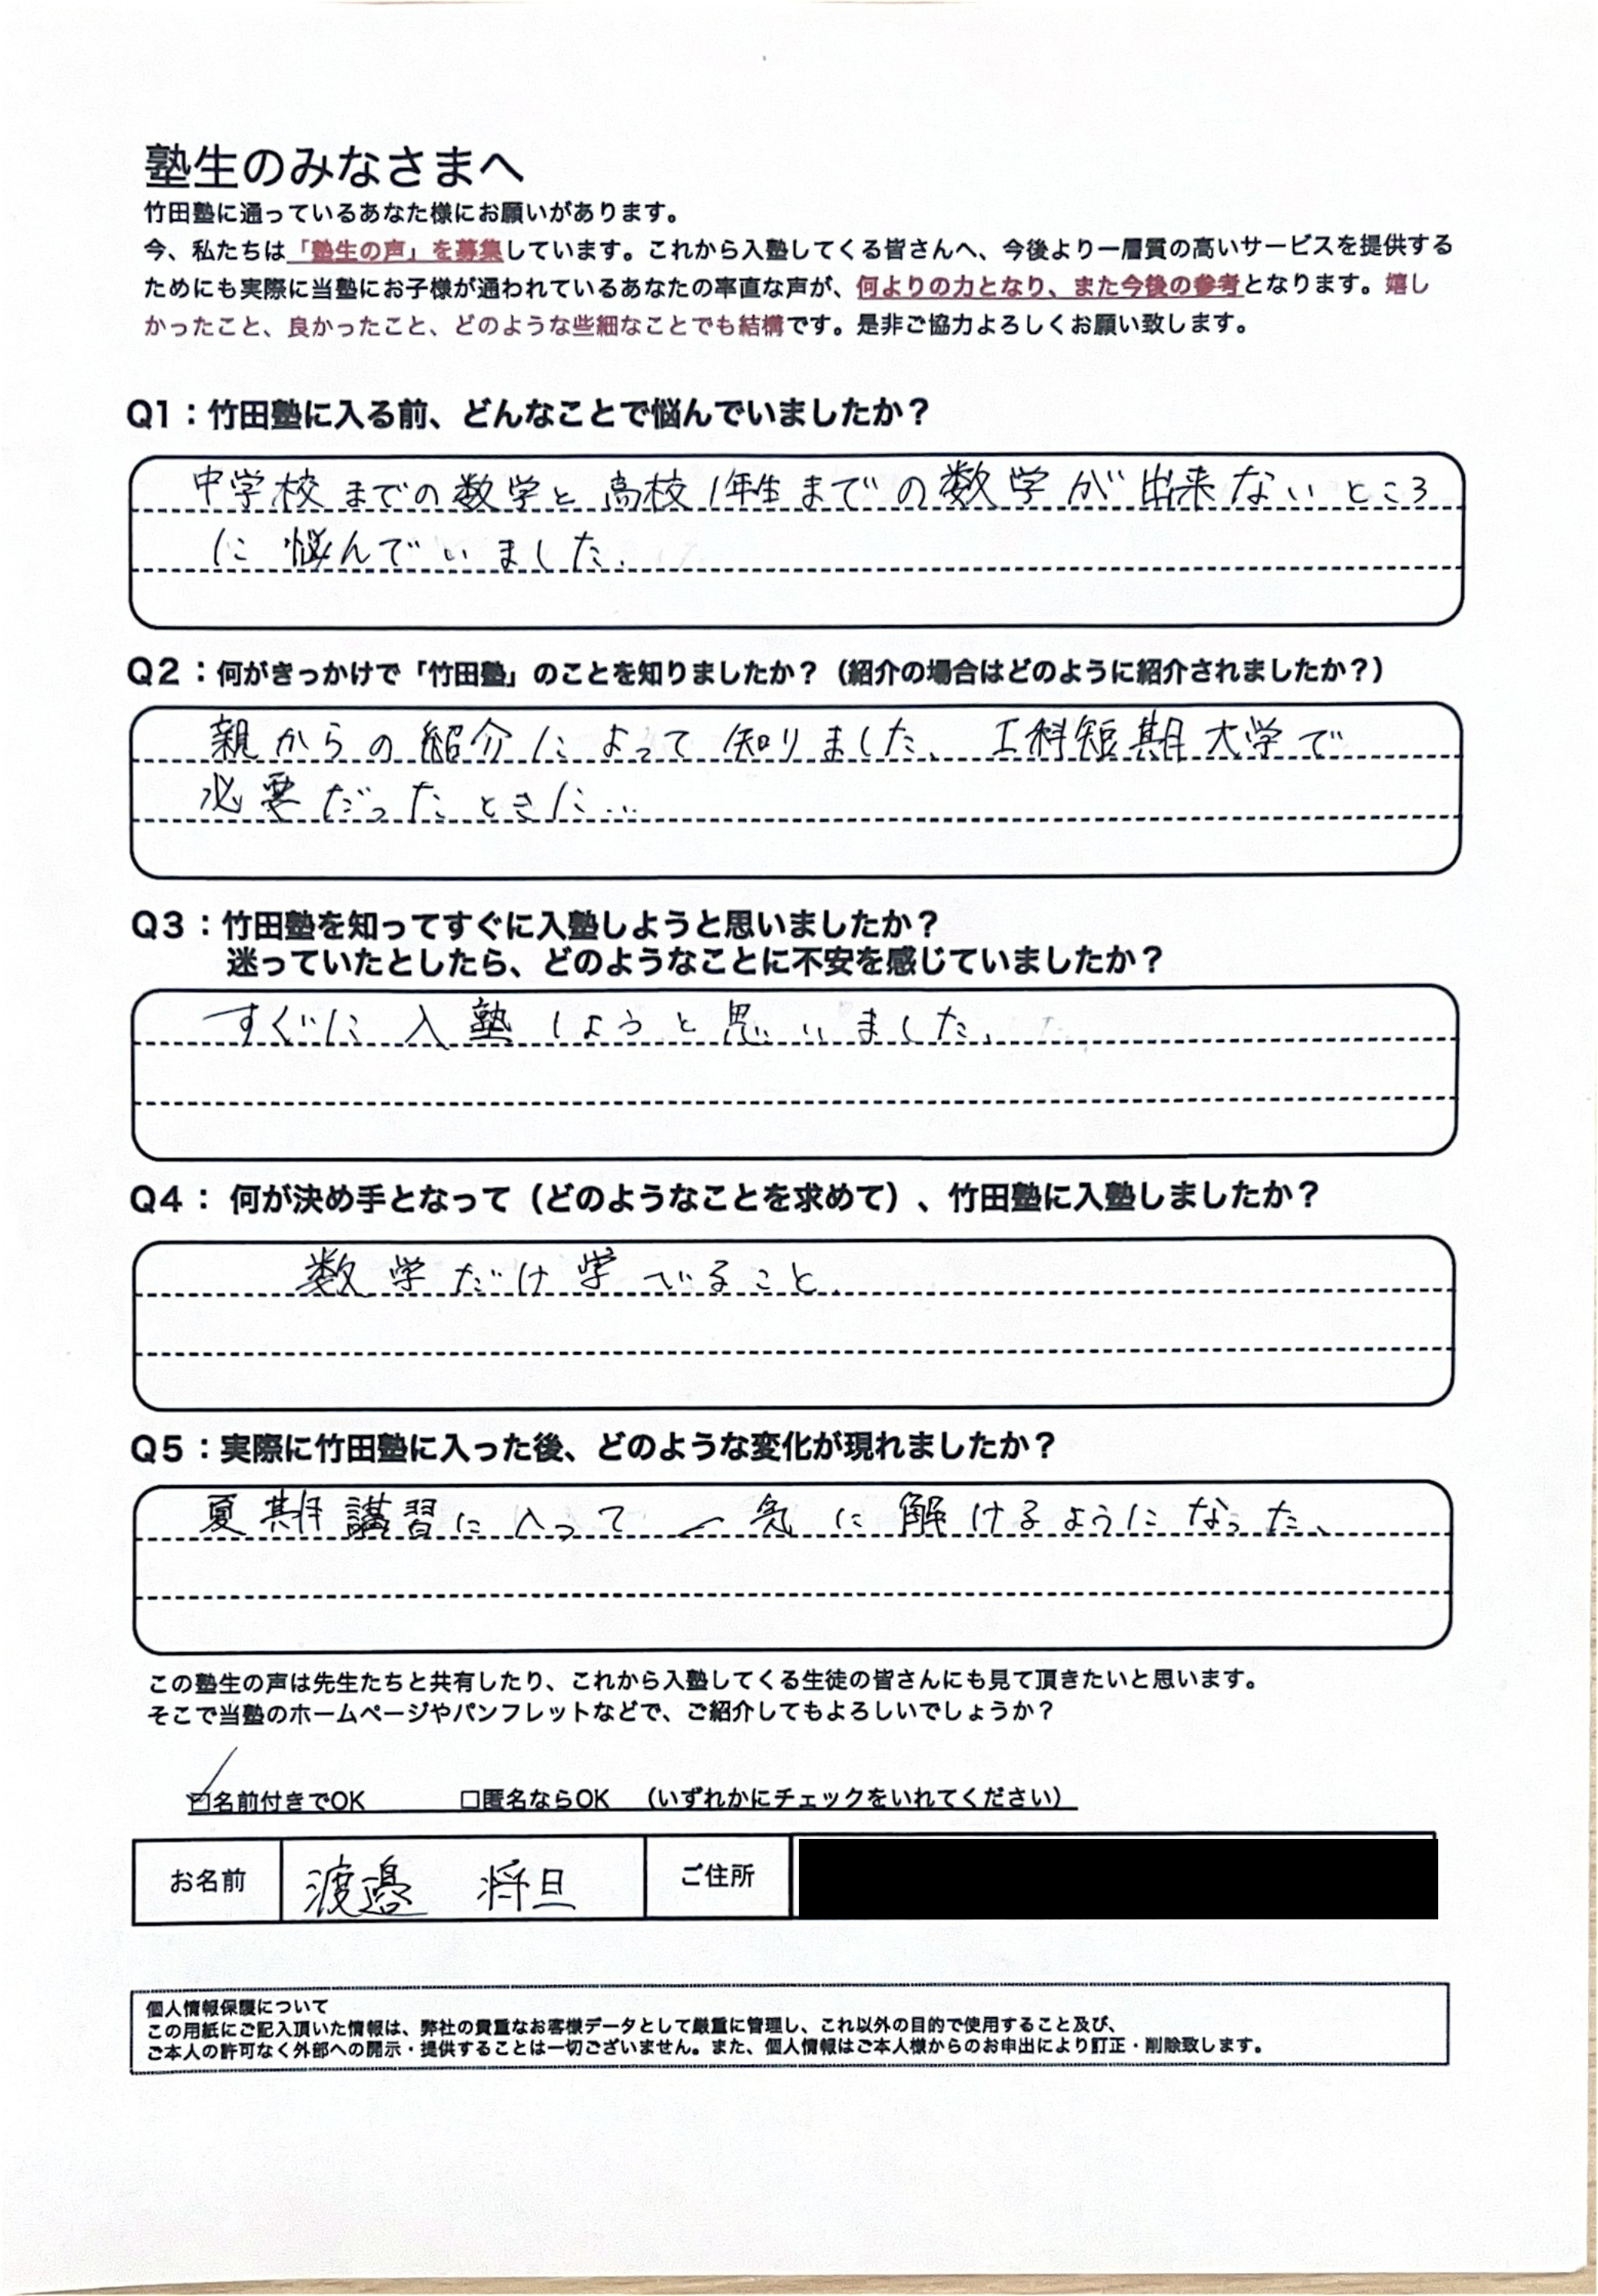 塾生のみなさまへ
竹田塾に通っているあなた様にお願いがあります。
今、私たちは「塾生の声」を募集しています。これから入塾してくる皆さんへ、今後より一層質の高いサービスを提供する
ためにも実際に当塾にお子様が通われているあなたの率直な声が、何よりの力となり、また今後の参考となります。嬉し
かったこと、良かったこと、どのような些細なことでも結構です。是非ご協力よろしくお願い致します。
Q1：竹田塾に入る前、どんなことで悩んでいましたか？
中学校までの数学と高校1年生までの数学が出来ないところ
に悩んでいました.
Q2：何がきっかけで「竹田塾」のことを知りましたか？（紹介の場合はどのように紹介されましたか？）
親からの紹介によって知りました、工科短期大学で
必要だったときに…
Q3：竹田塾を知ってすぐに入塾しようと思いましたか？
迷っていたとしたら、どのようなことに不安を感じていましたか？
すぐに入塾しようと思いました、
Q4： 何が決め手となって（どのようなことを求めて）、竹田塾に入塾しましたか？
数学だけ学べること.
Q5：実際に竹田塾に入った後、どのような変化が現れましたか？
夏期講習に入って一気に解けるようになった、
この塾生の声は先生たちと共有したり、これから入塾してくる生徒の皆さんにも見て頂きたいと思います。
そこで当塾のホームページやパンフレットなどで、ご紹介してもよろしいでしょうか？
☑名前付きでOK □匿名ならOK （いずれかにチェックをいれてください）
お名前 渡邉 将旦 ご住所
個人情報保護について
この用紙にご記入頂いた情報は、弊社の貴重なお客様データとして厳重に管理し、これ以外の目的で使用すること及び、
ご本人の許可なく外部への開示・提供することは一切ございません。また、個人情報はご本人様からのお申出により訂正・削除致します。